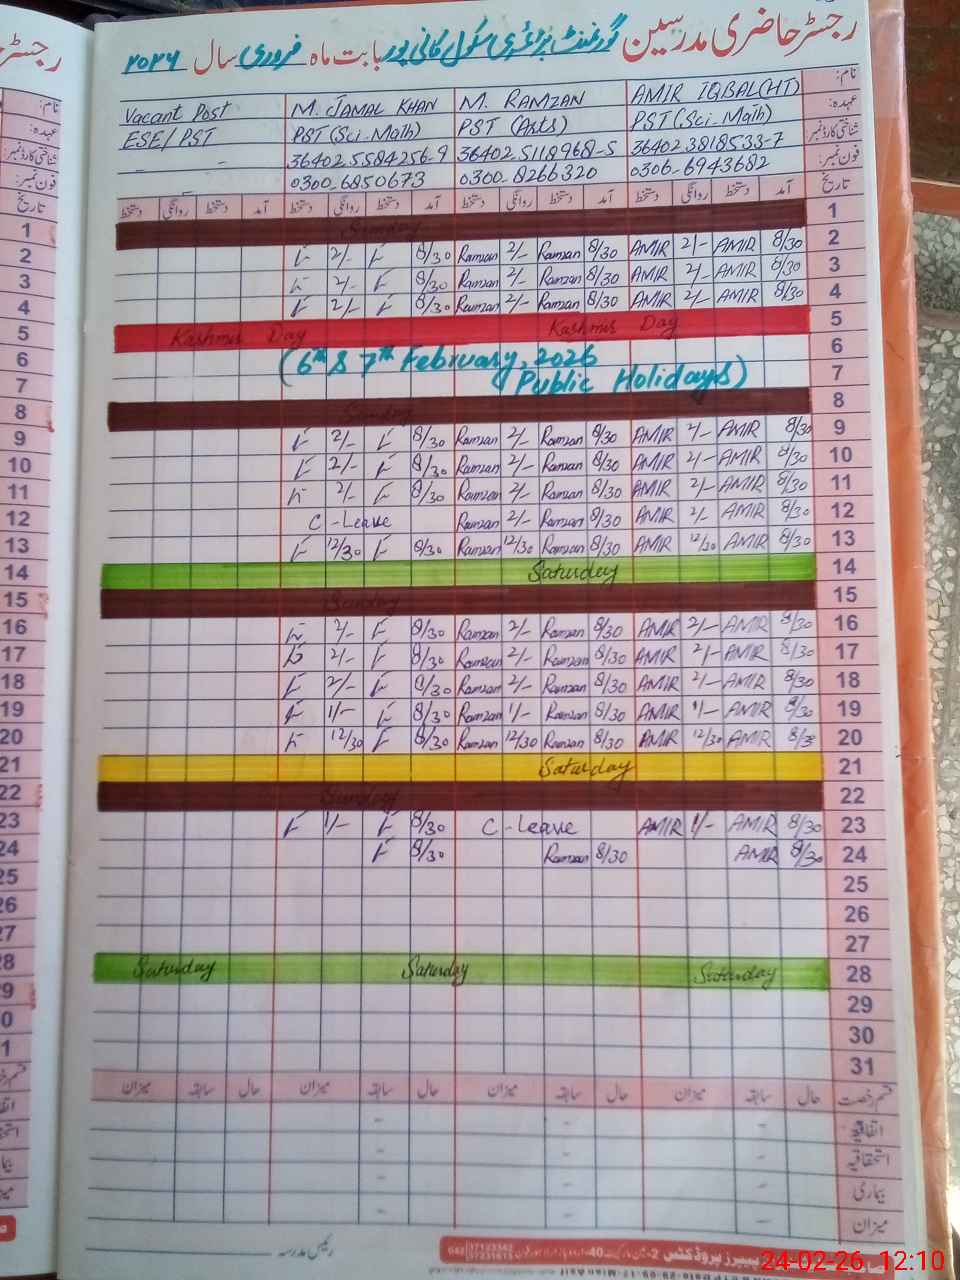 رجسٹر حاضری مدرسین گورنمنٹ پرائمری سکول کانی پور بابت ماہ فروری سال ۲۰۲۶
نام: AMIR IQBAL(HT) M. RAMZAN M. JAMAL KHAN Vacant Post
عہدہ: PST(Sci-Math) PST (Arts) PST(Sci-Math) ESE/PST
شناختی کارڈ نمبر: 36402-3818533-7 36402-5118968-5 36402-5584256-9 - -
فون نمبر: 0306-6943682 0300-8266320 0300-6850673
تاریخ آمد دستخط روانگی دستخط آمد دستخط روانگی دستخط آمد دستخط روانگی دستخط آمد دستخط روانگی دستخط
1 Sunday 1
2 2/- 8/30 Ramzan 2/- Ramzan 8/30 AMIR 2/- AMIR 8/30 2
3 2/- 8/30 Ramzan 2/- Ramzan 8/30 AMIR 2/- AMIR 8/30 3
4 2/- 8/30 Ramzan 2/- Ramzan 8/30 AMIR 2/- AMIR 8/30 4
5 Kashmir Day Kashmir Day 5
6 (6th & 7th February, 2026 6
7 Public Holidays) 7
8 Sunday 8
9 2/- 8/30 Ramzan 2/- Ramzan 8/30 AMIR 2/- AMIR 8/30 9
10 2/- 8/30 Ramzan 2/- Ramzan 8/30 AMIR 2/- AMIR 8/30 10
11 2/- 8/30 Ramzan 2/- Ramzan 8/30 AMIR 2/- AMIR 8/30 11
12 C-Leave Ramzan 2/- Ramzan 8/30 AMIR 2/- AMIR 8/30 12
13 12/30 8/30 Ramzan 12/30 Ramzan 8/30 AMIR 12/30 AMIR 8/30 13
14 Saturday 14
15 Sunday 15
16 2/- 8/30 Ramzan 2/- Ramzan 8/30 AMIR 2/- AMIR 8/30 16
17 2/- 8/30 Ramzan 2/- Ramzan 8/30 AMIR 2/- AMIR 8/30 17
18 2/- 8/30 Ramzan 2/- Ramzan 8/30 AMIR 2/- AMIR 8/30 18
19 1/- 8/30 Ramzan 1/- Ramzan 8/30 AMIR 1/- AMIR 8/30 19
20 12/30 8/30 Ramzan 12/30 Ramzan 8/30 AMIR 12/30 AMIR 8/3 20
21 Saturday 21
22 Sunday 22
23 1/- 8/30 C-Leave AMIR 1/- AMIR 8/30 23
24 8/30 Ramzan 8/30 AMIR 8/30 24
25 25
26 26
27 27
28 Saturday Saturday Saturday 28
29 29
30 30
31 31
قسم رخصت حال سابقہ میزان حال سابقہ میزان حال سابقہ میزان حال سابقہ میزان
اتفاقیہ - -  -
استحقاقیہ - - -
بیماری - - -
میزان - - -
رئیس مدرسہ
042 37123342
24-02-26 12:10